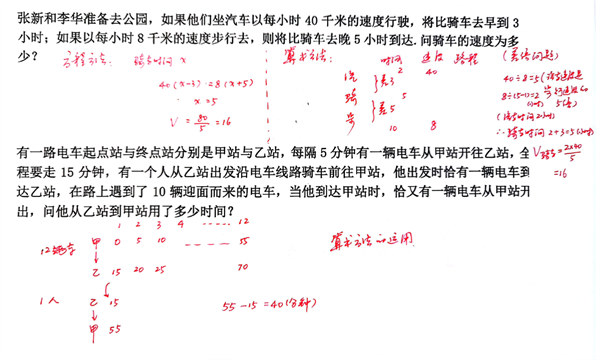 张新和李华准备去公园，如果他们坐汽车以每小时 40 千米的速度行驶，将比骑车去早到 3
小时；如果以每小时 8 千米的速度步行去，则将比骑车去晚 5 小时到达.问骑车的速度为多
少？ 方程方法： 骑车时间 x
40(x-3)=8(x+5)
x=5
V=80/5=16
算术方法：
时间 速度 路程
汽 2 40
差3
骑
差5
步 10 8
40÷8=5
8÷(5-1)=2
∴骑车时间 2+3=5
V骑车=2×40/5
=16
有一路电车起点站与终点站分别是甲站与乙站，每隔 5 分钟有一辆电车从甲站开往乙站，全
程要走 15 分钟，有一个人从乙站出发沿电车线路骑车前往甲站，他出发时恰有一辆电车到
达乙站，在路上遇到了 10 辆迎面而来的电车，当他到达甲站时，恰又有一辆电车从甲站开
出，问他从乙站到甲站用了多少时间？
1 2 3 4 ----- 12
12辆车 甲 0 5 10 ---- 55
乙 15 20 25 70
1人 乙 15
甲 55
55-15=40(分钟)
算术方法的运用